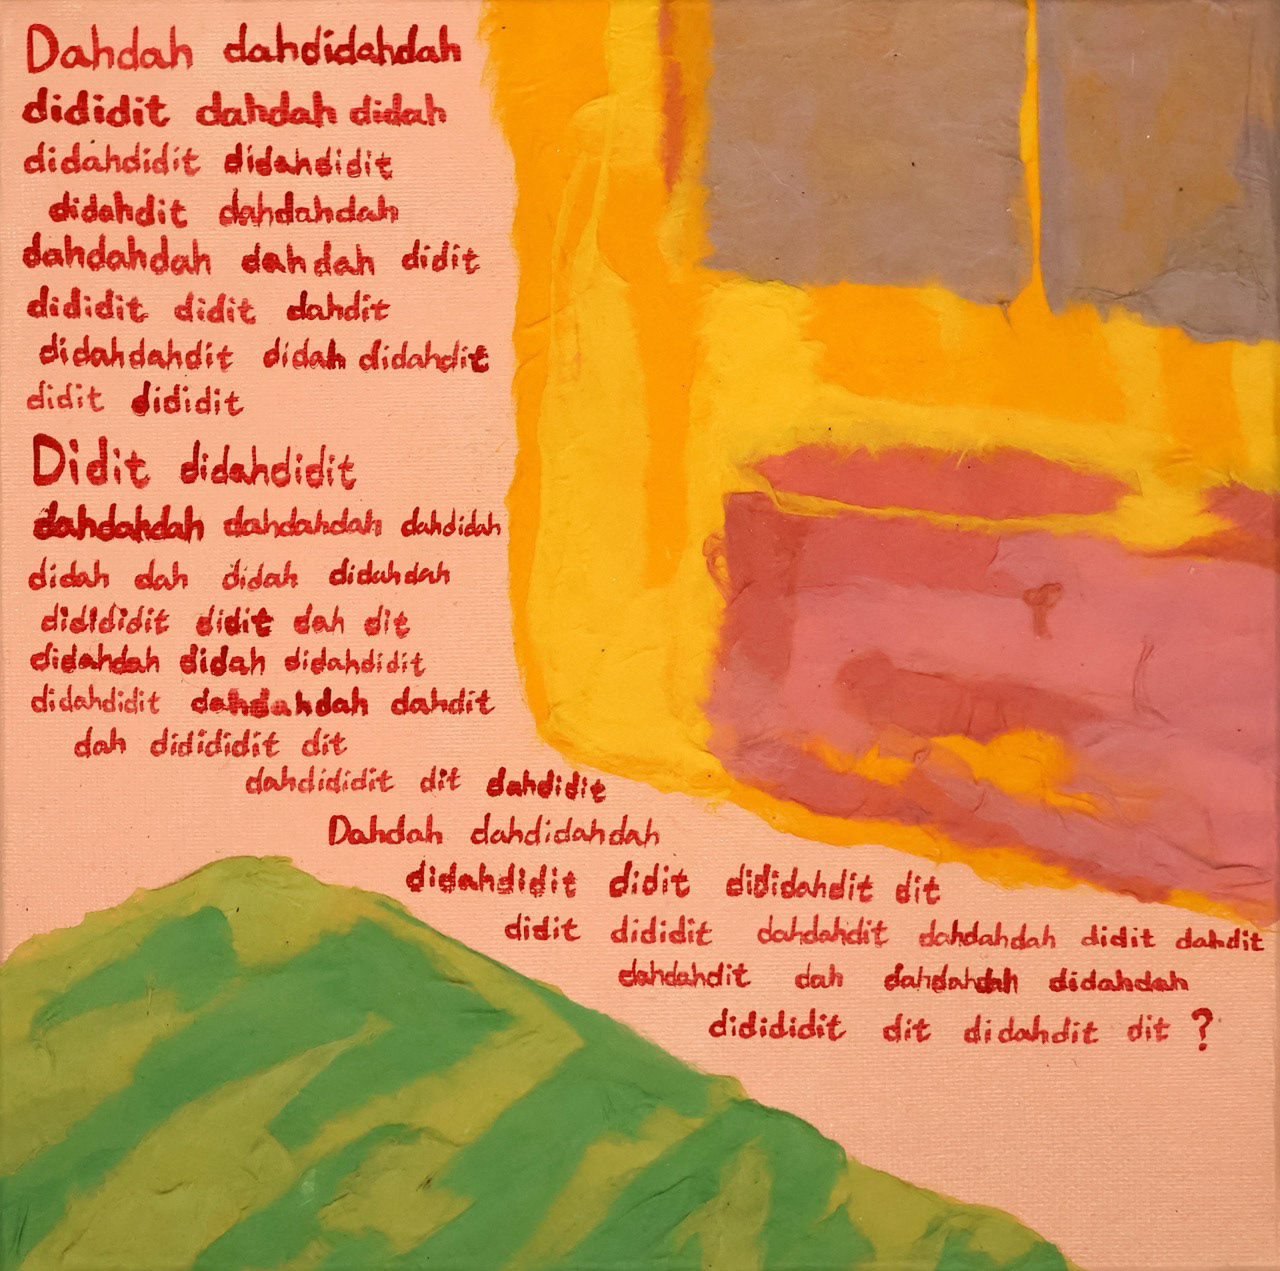 Dahdah dahdidahdah
dididit dahdah didah
didahdidit didahdidit
didahdit dahdahdah
dahdahdah dahdah didit
dididit didit dahdit
didahdahdit didah didahdit
didit dididit
Didit didahdidit
dahdahdah dahdahdah dahdidah
didah dah didah didahdah
didididit didit dah dit
didahdah didah didahdidit
didahdidit dahdahdah dahdit
dah didididit dit
dahdididit dit dahdidit
Dahdah dahdidahdah
didahdidit didit dididahdit dit
didit dididit dahdahdit dahdahdah didit dahdit
dahdahdit dah dahdahdah didahdah
didididit dit didahdit dit ?